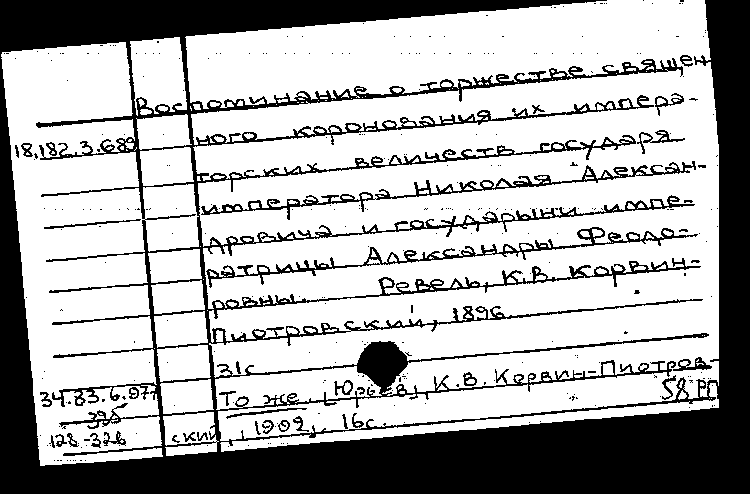 Воспоминание о торжестве священ-
18.182.3.689 ного коронования их импера-
торских величеств государя
императора Николая Алексан-
дровича и государыни импе-
ратрицы Александры Феодо-
ровны. Ревель, К.В. Корвин-
Пиотровский, 1896.
31с
34.83.6.977 То же. [Юрьев], К.В. Корвин-Пиотров-
395 58 РП
128-326 ский, 1902, 16с.